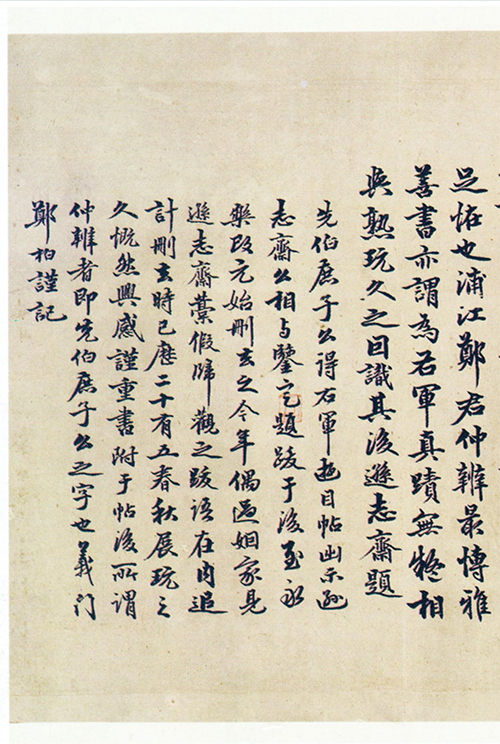 足恠也浦江鄭君仲辨最博雅
善書亦謂為右軍真蹟無疑相
與熟玩久之因識其後遜志齋題
先伯庶子公得右軍遊目帖出示遜
志齋公相与鑒定題跋于後至永
樂改元始刪去之今年偶過姻家見
遜志齋藁假歸觀之跋語在內追
計刪去時已歷二十有五春秋展玩之
久慨然興感謹重書附于帖後所謂
仲辨者即先伯庶子公之字也義門
鄭柏謹記